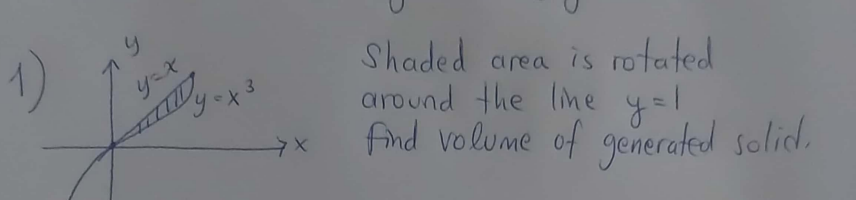 1)
y
y=x
y=x³
x
Shaded area is rotated
around the line y=1
find volume of generated solid.